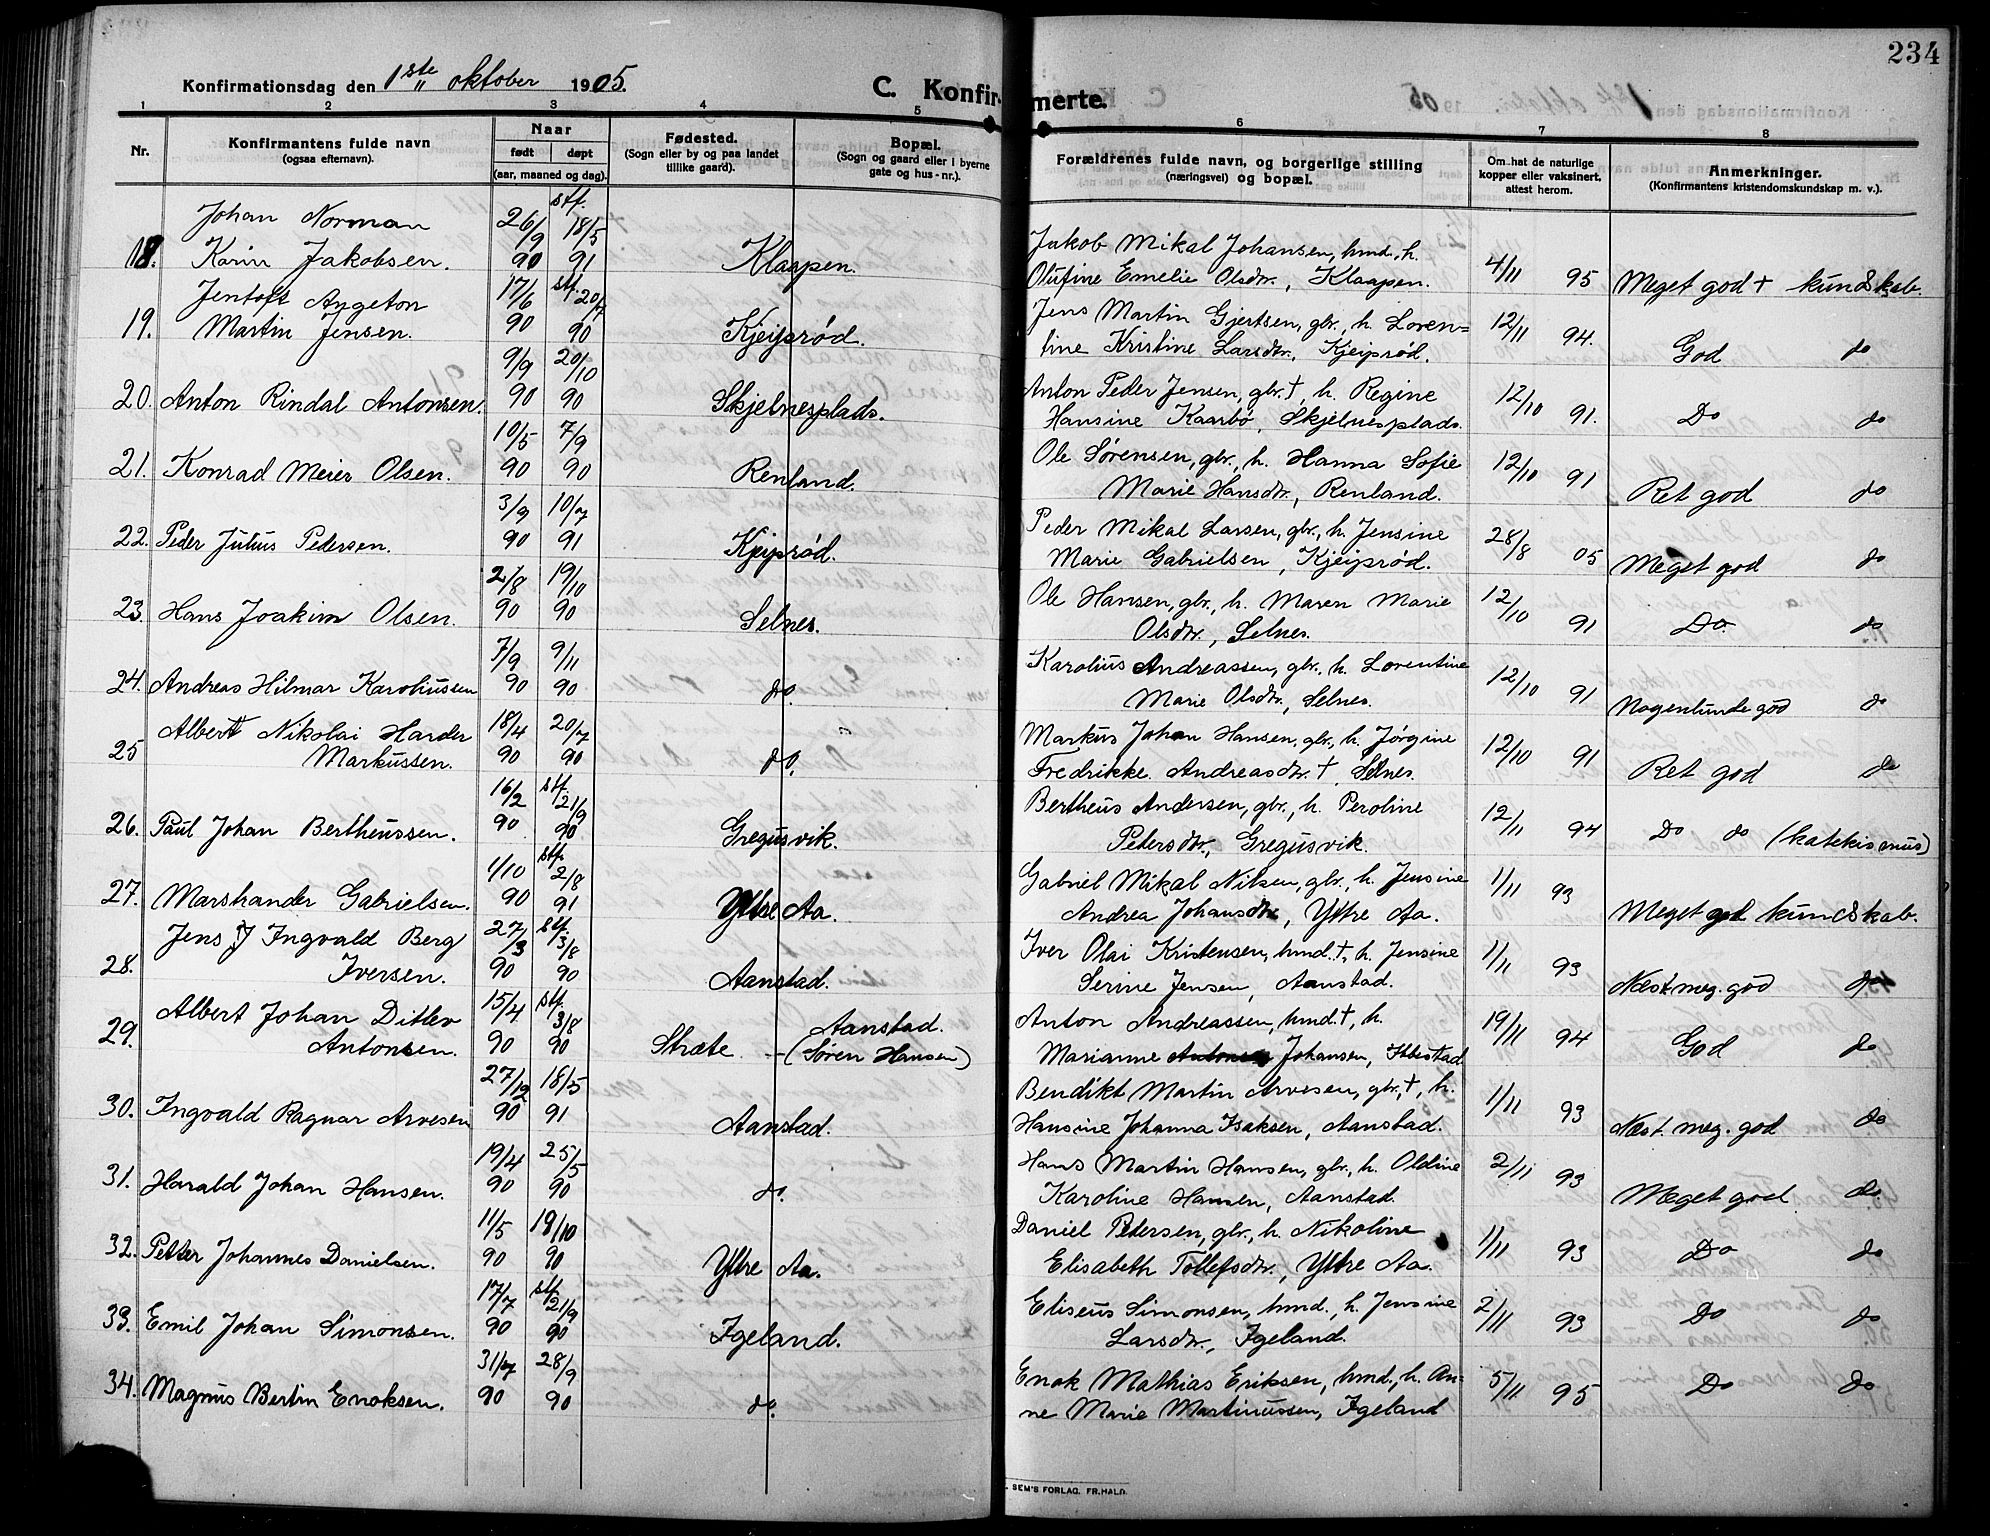 234
Konfirmationsdag den 1ste oktober 1905.
C. Konfirmerte.
1 2 3 4 5 6 7 8
Nr.
Konfirmantens fulde navn
(ogsaa efternavn).
Naar
født døpt
(aar, maaned og dag).
Fødested.
(Sogn eller by og paa landet
tillike gaard).
Bopæl.
(Sogn og gaard eller i byerne
gate og hus-nr.).
Forældrenes fulde navn, og borgerlige stilling
(næringsvei) og bopæl.
Om hat de naturlige
kopper eller vaksinert,
attest herom.
Anmerkninger.
(Konfirmantens kristendomskundskap m. v.).
Johan Norman 26/9 stf. 18/5 Jakob Mikal Johansen, hmd., h.
18. Karin Jakobsen. 90 91 Klaapen. Olufine Emelie Olsdtr., Klaapen. 4/11 95 Meget god + kundskab.
Jentoft Angeton 17/6 stf. 20/7 Jens Martin Gjertsen, gbr., h. Loren=
19. Martin Jensen. 90 90 Kjeiprød. tine Kristine Larsdtr., Kjeiprød. 12/11 94. God do
9/9 20/10 Anton Peder Jensen, gbr.†, h. Regine
20. Anton Rindal Antonsen. 90 90 Skjelnesplads. Hansine Kaarbø, Skjelnesplads. 12/10 91. Do do
10/5 7/9 Ole Sørensen, gbr., h. Hanna Sofie
21. Konrad Meier Olsen. 90 90 Renland. Marie Hansdtr., Renland. 12/10 91 Ret god do
3/9 10/7 Peder Mikal Larsen, gbr., h. Jensine
22. Peder Julius Pedersen. 90 91 Kjeiprød. Marie Gabrielsen, Kjeiprød. 28/8 05 Meget god do
2/8 19/10 Ole Hansen, gbr., h. Maren Marie
23. Hans Joakim Olsen. 90 90 Selnes. Olsdtr., Selnes. 12/10 91 Do. do
7/9 9/11 Karolius Andreassen, gbr., h. Lorentine
24. Andreas Hilmar Karoliussen 90 90 do. Marie Olsdtr., Selnes. 12/10 91 Nogenlunde god do
Albert Nikolai Harder 18/4 20/7 Markus Johan Hansen, gbr., h. Jørgine
25 Markussen. 90 90 do. Fredrikke Andreasdtr.†, Selnes. 12/10 91 Ret god do
16/2 stf. 21/9 Bertheus Andersen, gbr., h. Peroline
26. Paul Johan Bertheussen. 90 90 Gregusvik. Petersdtr., Gregusvik. 12/11 94 Do do (katekismus)
1/10 stf. 2/8 Gabriel Mikal Nilsen, gbr., h. Jensine
27. Marshander Gabrielsen. 90 91 Yttre Aa. Andrea Johansdtr., Yttre Aa. 1/11 93 Meget god kundskab.
Jens J Ingvald Berg 27/3 stf. 3/8 Iver Olai Kristensen, hmd.†, h. Jensine
28. Iversen. 90 90 Aanstad. Serine Jensen, Aanstad. 1/11 93 Næst meg. god do
Albert Johan Ditlev 15/4 stf. 3/8 Aanstad. Anton Andreassen, hmd.†, h.
29. Antonsen. 90 90 Stræte. – (Søren Hansen) Marianne Johansen, Ibbestad. 19/11 94 God do
27/12 18/5 Bendikt Martin Arvesen, gbr., †, h.
30. Ingvald Ragnar Arvesen 90 91 Aanstad. Hansine Johanna Isaksen, Aanstad. 1/11 93 Næst. meg. god do
19/4 25/5 Hans Martin Hansen, gbr., h. Oldine
31. Harald Johan Hansen. 90 90 do. Karoline Hansen, Aanstad. 2/11 93 Meget god do.
11/5 19/10 Daniel Petersen, gbr., h. Nikoline
32. Petter Johannes Danielsen. 90 90 Yttre Aa. Elisabeth Tollefsdtr., Yttre Aa. 1/11 93 Do do
17/7 stf. 21/9 Eliseus Simonsen, hmd., h. Jensine
33. Emil Johan Simonsen. 90 90 Igeland. Larsdtr., Igeland. 2/11 93 Do do
31/7 28/9 Enok Mathias Eriksen, hmd., h. An=
34. Magnus Bertin Enoksen. 90 90 do. ne Marie Martinussen, Igeland 5/11 95 Do do
SEM'S FORLAG, FR.HALD.